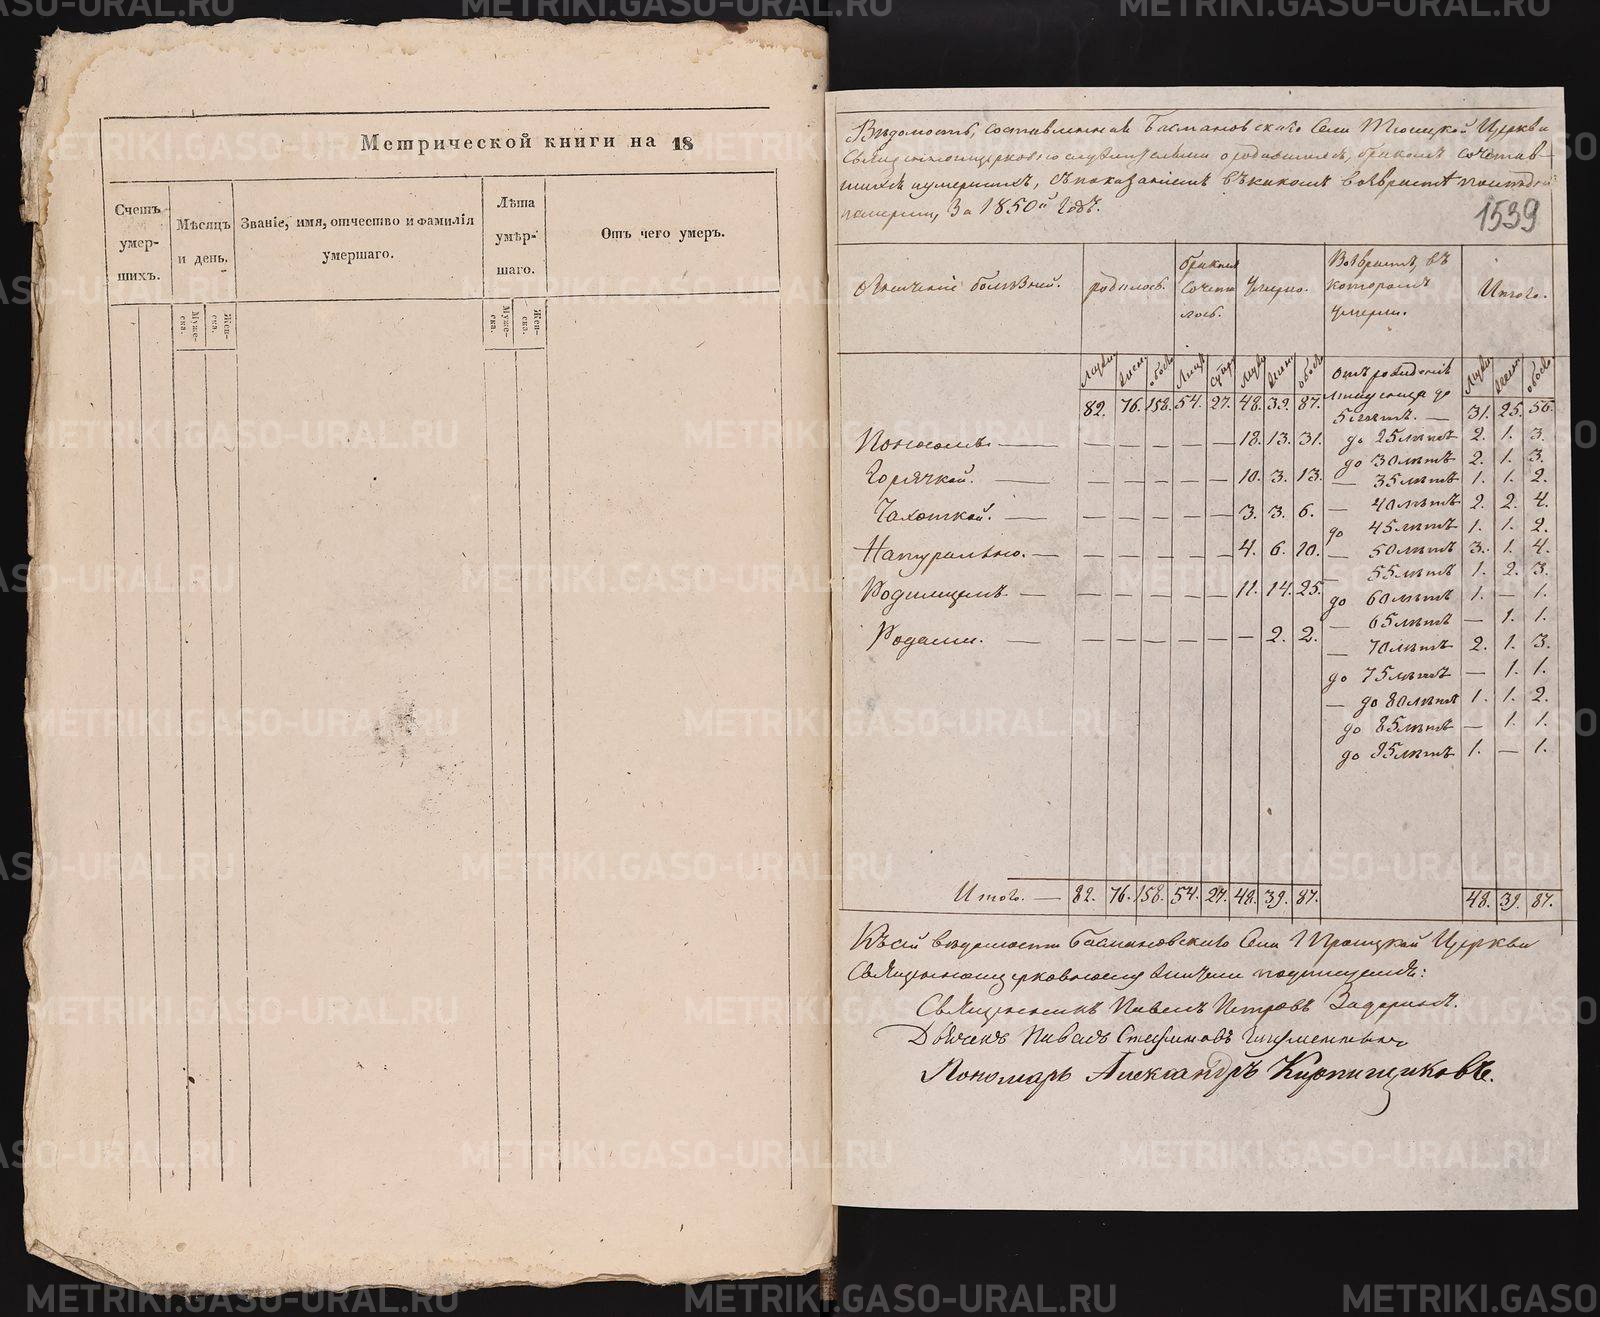 Метрической книги на 18
Счетъ умер- шихъ.
Мѣсяцъ и день.
Званіе, имя, отчество и фамилія умершаго.
Лѣта умѣр- шаго.
Отъ чего умеръ.
Муже- ска.
Жен- ска.
Муже- ска.
Жен- ска.
Вѣдомость, составленная Басмановскаго Села Троицкой Церкви
Священноцерковнослужителями о родившихся, бракомъ сочетав-
шихся и умершихъ, съ показаніемъ въ какомъ возврастѣ
померли, За 1850й Годъ.
1539
болѣзней.
родилось.
бракомъ сочета лось.
Умерло.
Возврастъ, въ которомъ умерли.
Итого.
Мужск женск обоего Лицъ Мужск женск обоего Отъ рожденія Мужск женск обоего
82. 76. 158. 54. 27. 48. 39. 87. до 5ти лѣтъ. — 31. 25. 56.
Поносомъ. — — — — — — 18. 13. 31. до 25 лѣтъ 2. 1. 3.
до 30 лѣтъ 2. 1. 3.
Горячкой. — — — — — — 10. 3. 13. — 35 лѣтъ 1. 1. 2.
Чахоткой. — — — — — — 3. 3. 6. — 40 лѣтъ 2. 2. 4.
до 45 лѣтъ 1. 1. 2.
Натурально. — — — — — — 4. 6. 10. — 50 лѣтъ 3. 1. 4.
— 55 лѣтъ 1. 2. 3.
Родимцемъ. — — — — — — 11. 14. 25. до 60 лѣтъ 1. — 1.
— 65 лѣтъ — 1. 1.
Родами. — — — — — — — 2. 2. — 70 лѣтъ 2. 1. 3.
до 75 лѣтъ — 1. 1.
— до 80 лѣтъ 1. 1. 2.
до 85 лѣтъ — 1. 1.
до 95 лѣтъ 1. — 1.
Итого. — 82. 76. 158. 54. 27. 48. 39. 87. 48. 39. 87.
Къ сей вѣдомости Басмановскаго Села Троицкой Церкви
Священноцерковнослужители подписуемся:
Священникъ Павелъ Петровъ
Дьячекъ Стефановъ
Пономарь Александръ Кирпищиковъ.
METRIKI.GASO-URAL.RU